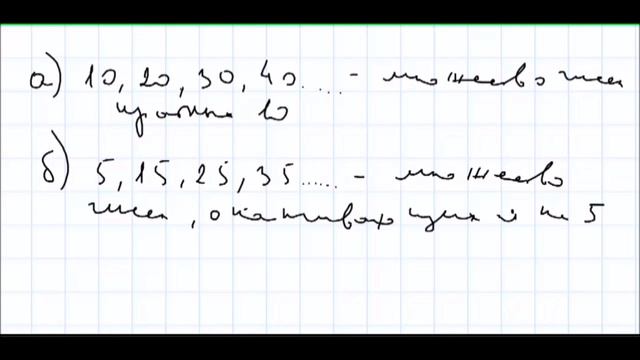 а) 10, 20, 30, 40..... - множество чисел
кратных 10
б) 5, 15, 25, 35...... - множество
чисел, оканчивающихся на 5